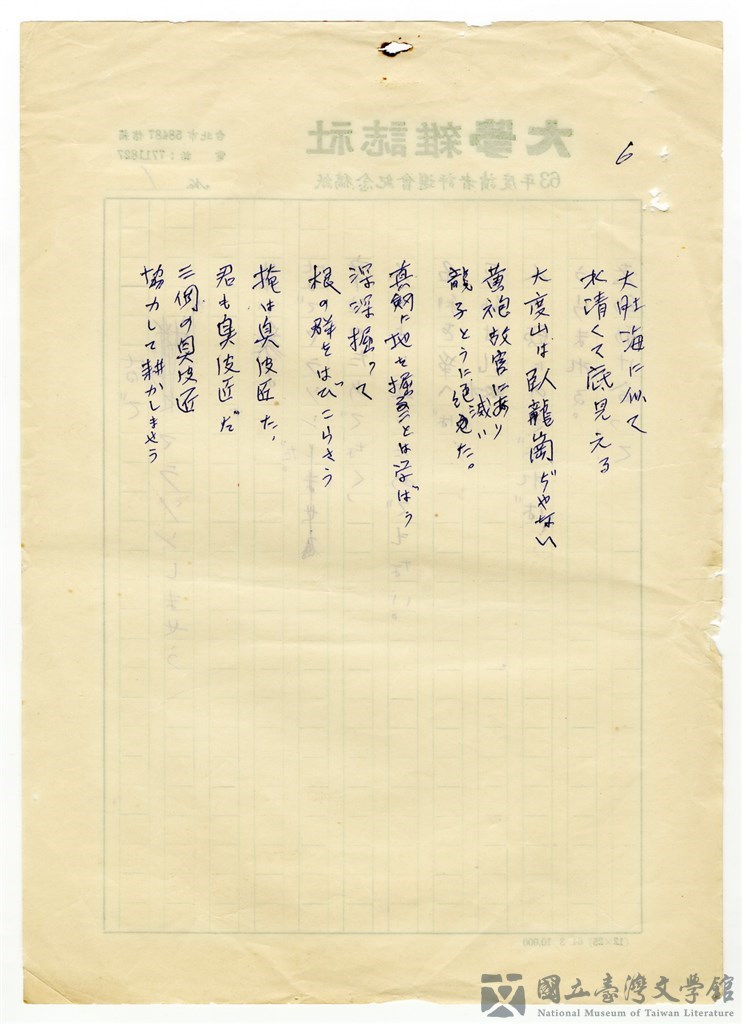 6
大肚海に似て
水清くて底見える
大度山は臥龍崗ぢやない
黄袍故宮にあり
龍子とうに絶滅した。
真剣に地を掘ることは学ばう
深深掘って
根の群をはびこらさう
掩は臭皮匠だ、
君も臭皮匠だ
三個の臭皮匠
協力して耕かしませう
大學雜誌社
63年度讀者評選會紀念稿紙
台北市58487信箱
電話：7711837
No.
國立臺灣文學館
National Museum of Taiwan Literature